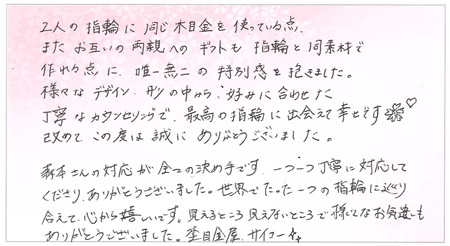 2人の指輪に同じ木目金を使っている点、
またお互いの両親へのギフトも指輪と同素材で
作れる点に、唯一無二の特別感を抱きました。
様々なデザイン、形の中から、好みに合わせた
丁寧なカウンセリングで、最高の指輪に出会えて幸せです
改めてこの度は誠にありがとうございました。
森本さんの対応が全ての決め手です。一つ一つ丁寧に対応して
くださり、ありがとうございました。世界でたった一つの指輪にめぐり
合えて、心から嬉しいです。見えるところ見えないところで様々なお気遣いも
ありがとうございました。杢目金屋、サイコー